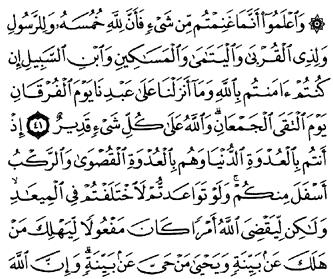 ۞ وَاعْلَمُوا أَنَّمَا غَنِمْتُم مِّن شَيْءٍ فَأَنَّ لِلَّهِ خُمُسَهُ وَلِلرَّسُولِ
وَلِذِي الْقُرْبَىٰ وَالْيَتَامَىٰ وَالْمَسَاكِينِ وَابْنِ السَّبِيلِ إِن
كُنتُمْ ءَامَنتُم بِاللَّهِ وَمَا أَنزَلْنَا عَلَىٰ عَبْدِنَا يَوْمَ الْفُرْقَانِ
يَوْمَ الْتَقَى الْجَمْعَانِ ۗ وَاللَّهُ عَلَىٰ كُلِّ شَيْءٍ قَدِيرٌ ٤١ إِذْ
أَنتُم بِالْعُدْوَةِ الدُّنْيَا وَهُم بِالْعُدْوَةِ الْقُصْوَىٰ وَالرَّكْبُ
أَسْفَلَ مِنكُمْ ۚ وَلَوْ تَوَاعَدتُّمْ لَاخْتَلَفْتُمْ فِي الْمِيعَادِ ۙ
وَلَٰكِن لِّيَقْضِيَ اللَّهُ أَمْرًا كَانَ مَفْعُولًا لِّيَهْلِكَ مَنْ
هَلَكَ عَن بَيِّنَةٍ وَيَحْيَىٰ مَنْ حَيَّ عَن بَيِّنَةٍ ۗ وَإِنَّ اللَّهَ